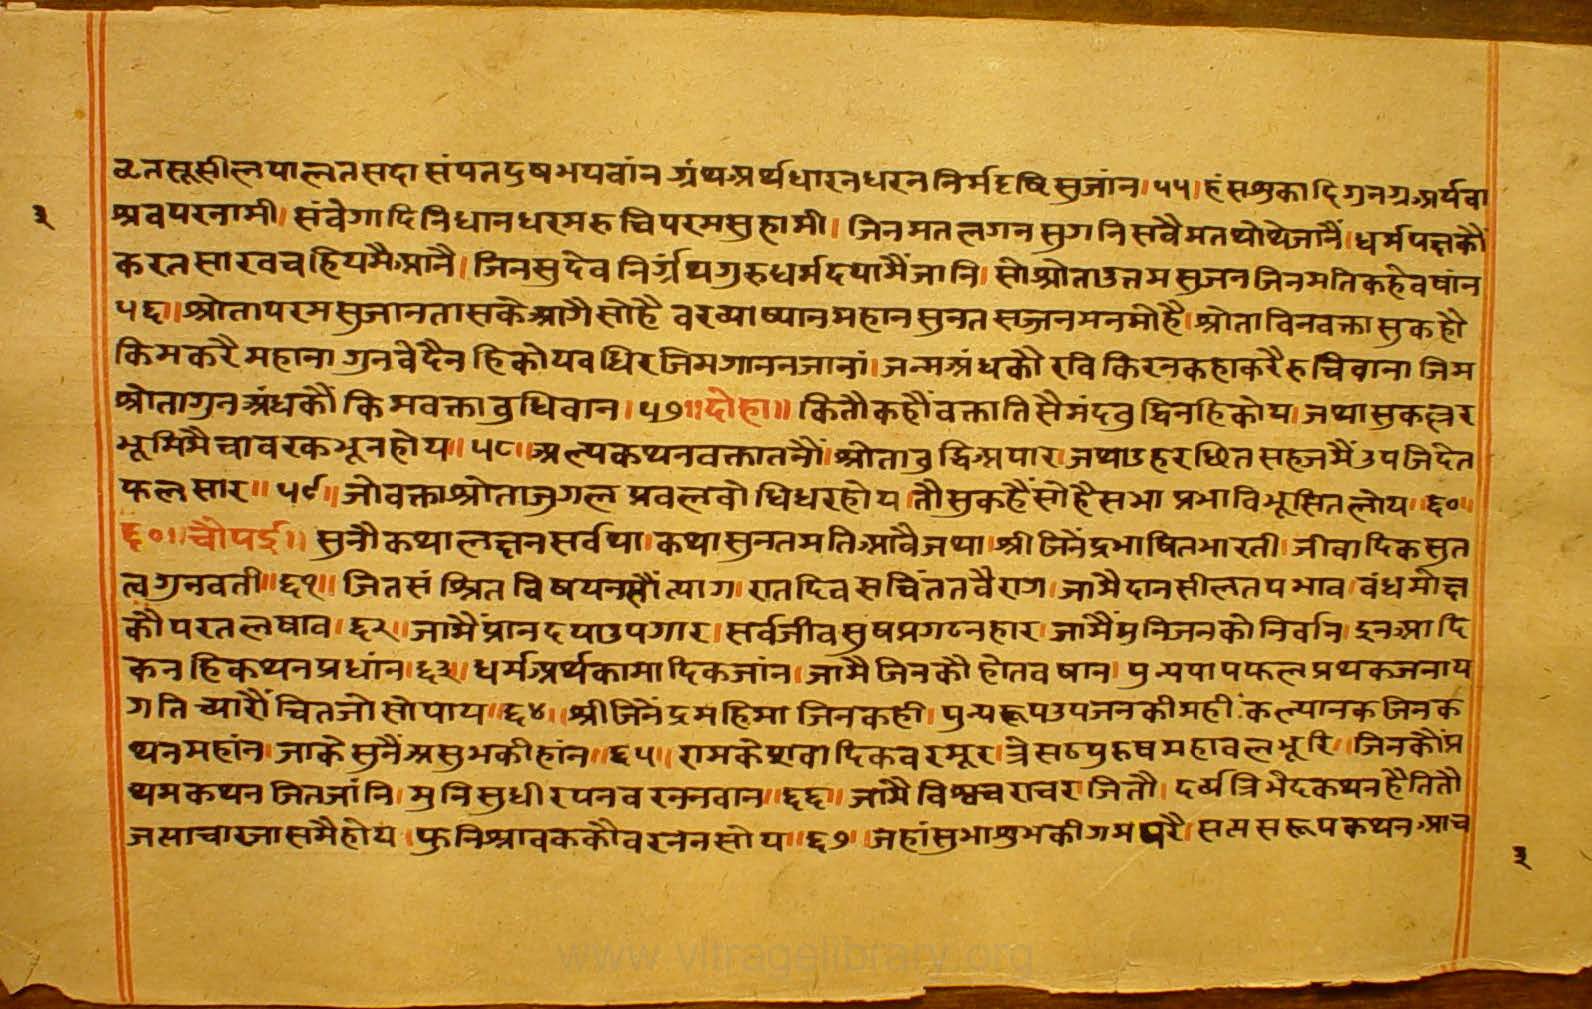 व्रतसूसीलपालतसदा संपतदुषभयवांन ग्रंथअर्थधारनधरन निर्मदृष्टि सुजांन।५५। हंसशुकादि गुनग्रअर्यवा
३
श्रवपरनामी। संवेगादि निधान धरमरुचि परमसुहामी। जिनमत लगन सुगनि सवैमतथोथेजानैं। धर्मपक्षकौं
करतसारवचहियमैआनै। जिनसुदेव निर्ग्रंथगुरु धर्मदयामैंजानि। सोश्रोताउत्तमसुजन जिनमति कहेवषांन
५६॥ श्रोतापरमसुजान तासकेआगैसोहै वरव्याष्यानमहान सुनत सज्जनमनमोहै। श्रोताविनवक्तासुकहौ
किमकरैमहाना गुनवेदैनहिकोयवधिरजिमगाननजानां। जन्मअंधकौ रविकिरन कहाकरैरुचिवाना जिम
श्रोतागुनअंधकौं किमवक्तावुधिवान।५७॥ दोहा॥ कितौकहौंवक्तातिसै मंदवुद्धिनहिकोय। जथासुकल्लर
भूमिमै चावरकभूनहोय॥५८॥ अल्पकथनवक्तातनौं। श्रोतावुद्धिअपार। जथाउहरछित सहजमैं उपजिदेत
फलसार॥५९॥ जोवक्ताश्रोताजुगल प्रवलवोधिधरहोय। तौसुकहैंसोहैसभा प्रभाविभूसितलोय॥६०॥
६०॥ चौपई॥ सुनौकथालक्षनसर्वथा। कथासुनतमतिआवैजथा। श्रीजिनेंद्रभाषितभारती। जीवादिकसुत
त्वगुनवती॥६१॥ जितसंश्रित विषयनसौं त्याग। रातदिवसचिंततवैराग। जामैदानसीलतपभाव। वंधमोक्ष
कौपरतलषाव।६२॥ जामैंप्रानदयाउपगार। सर्वजीवसुषप्रगटनहार। जामैंमुनिजनकोनिर्वान। इनआदि
केनहिकथनप्रधांन।६३॥ धर्मअर्थकामादिकजांन। जामैजिनकौहोतवषान। पुन्यपापफलप्रथकजनाय
गतिच्यारौंचितजोसोपाय॥६४॥ श्रीजिनेंद्रमहिमा जिनकही। पुन्यरूपउपजनकीमही। कल्यानकजिनक
थनमहांन। जाकेसुनैंअसुभकीहांन॥६५॥ रामकेशवादिकवरमूर। त्रेसठपुरुषमहावलभूरि। जिनकौंप्र
थमकथनजितजांनि। मुनिसुधीरपनवरननवान॥६६॥ जामै विश्वचराचरजितौ। दर्व्यत्रिभेदकथनहैतितौ
जत्याचारजासमैहोय। फुनिश्रावककौवरननसोय॥६७॥ जहांसुभाशुभकीगमपरै। सतसरूपकथनआच
३
www.vitragelibrary.org